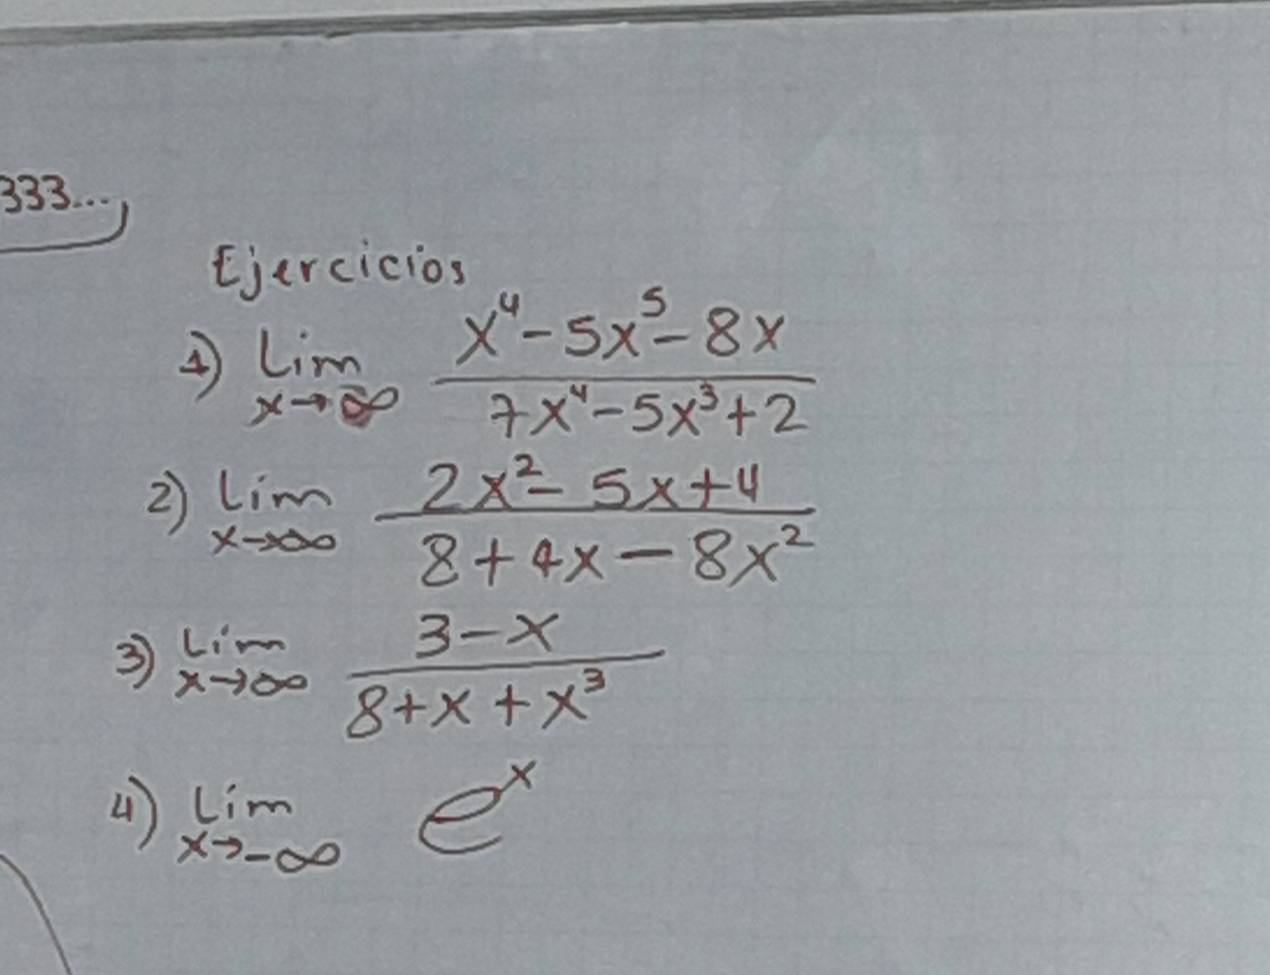 333...,
Ejercicios
1) Lim x→∞ (x⁴-5x⁵-8x)/(7x⁴-5x³+2)
2) Lim x→∞ (2x²-5x+4)/(8+4x-8x²)
3) Lim x→∞ (3-x)/(8+x+x³)
4) Lim x→-∞ eˣ